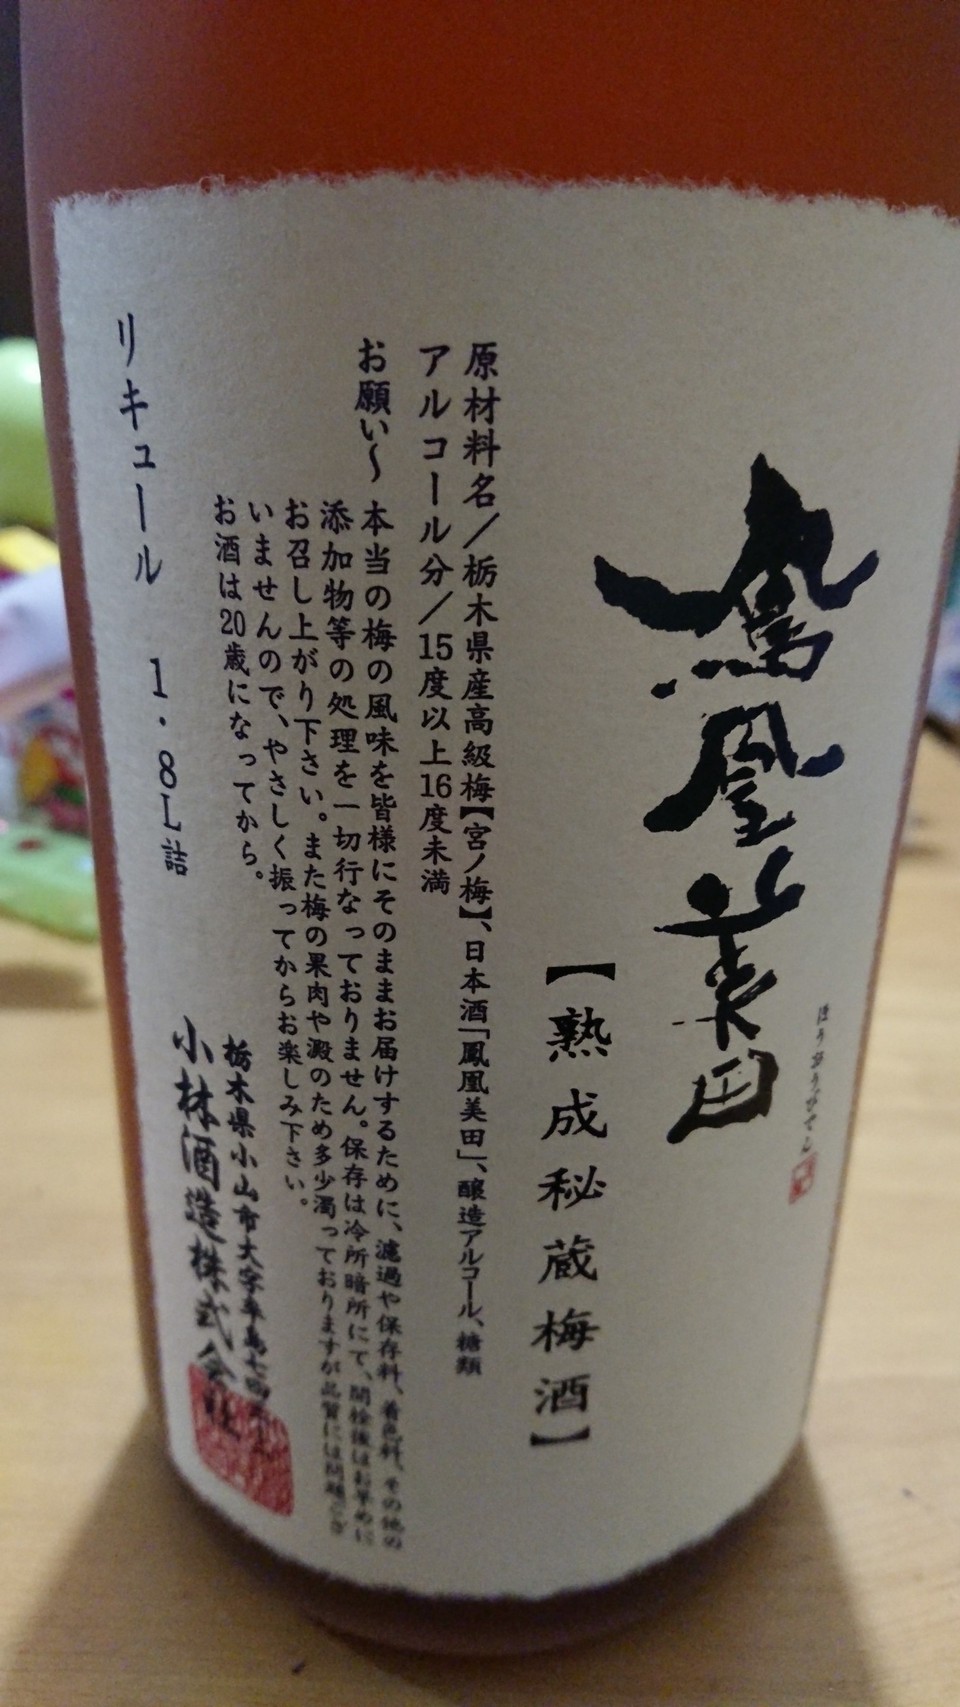 ほうおうびでん
鳳凰美田
【熟成秘蔵梅酒】
原材料名／栃木県産高級梅【宮ノ梅】、日本酒「鳳凰美田」、醸造アルコール、糖類
アルコール分／15度以上16度未満
お願い〜
本当の梅の風味を皆様にそのままお届けするために、濾過や保存料、着色料、その他の
添加物等の処理を一切行なっておりません。保存は冷所暗所にて、開栓後はお早めに
お召し上がり下さい。また梅の果肉や澱のため多少濁っておりますが品質には問題ござ
いませんので、やさしく振ってからお楽しみ下さい。
お酒は20歳になってから。
栃木県小山市大字卒島七四三ノ一
小林酒造株式会社
リキュール 1.8L詰